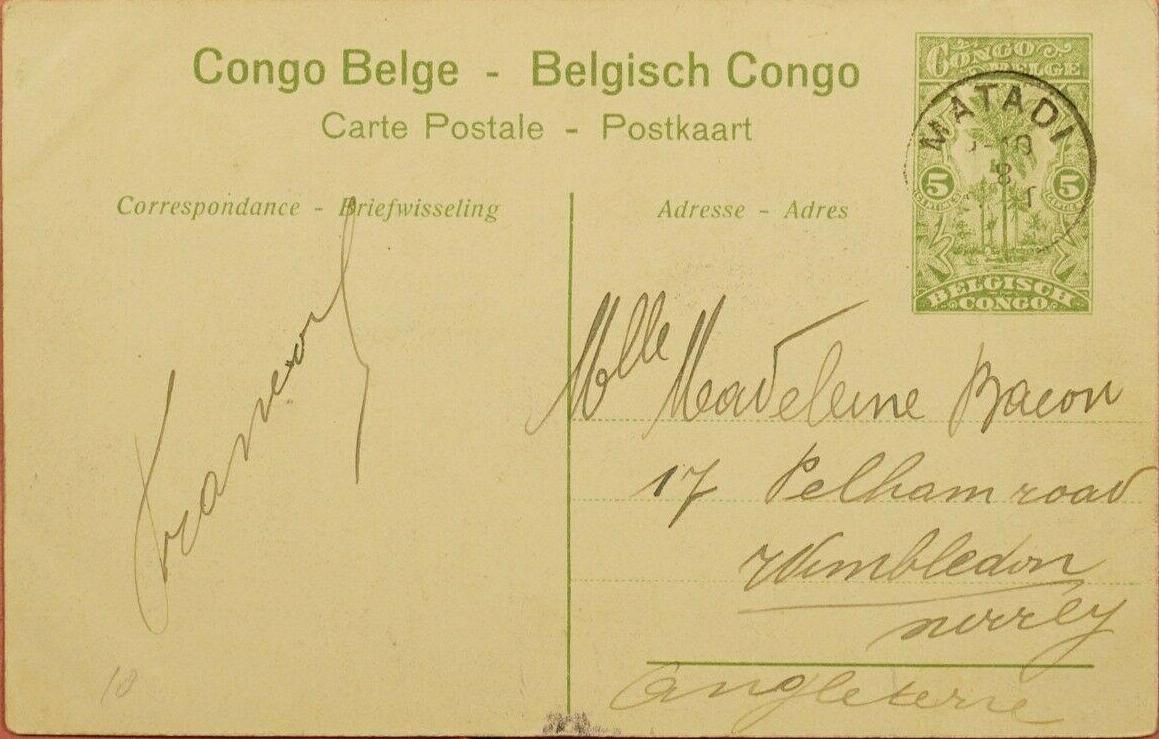 Congo Belge - Belgisch Congo
Carte Postale - Postkaart
CONGO BELGE
MATADI
8
5 5
BELGISCH CONGO
Correspondance - Briefwisseling
Adresse - Adres
Mlle Madeleine Bacon
17 Pelham road
Wimbledon
surrey
Angleterre
10